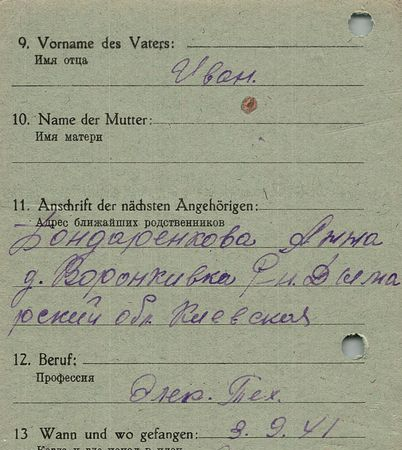 9. Vorname des Vaters:
Имя отца
Иван.
10. Name der Mutter:
Имя матери
11. Anschrift der nächsten Angehörigen:
Адрес ближайших родственников
Бондаренкова Анна
д. Воронкивка Р-н. Дыма
рский обл. Киевская
12. Beruf:
Профессия
Элек. Тех.
13 Wann und wo gefangen: 3. 9. 41